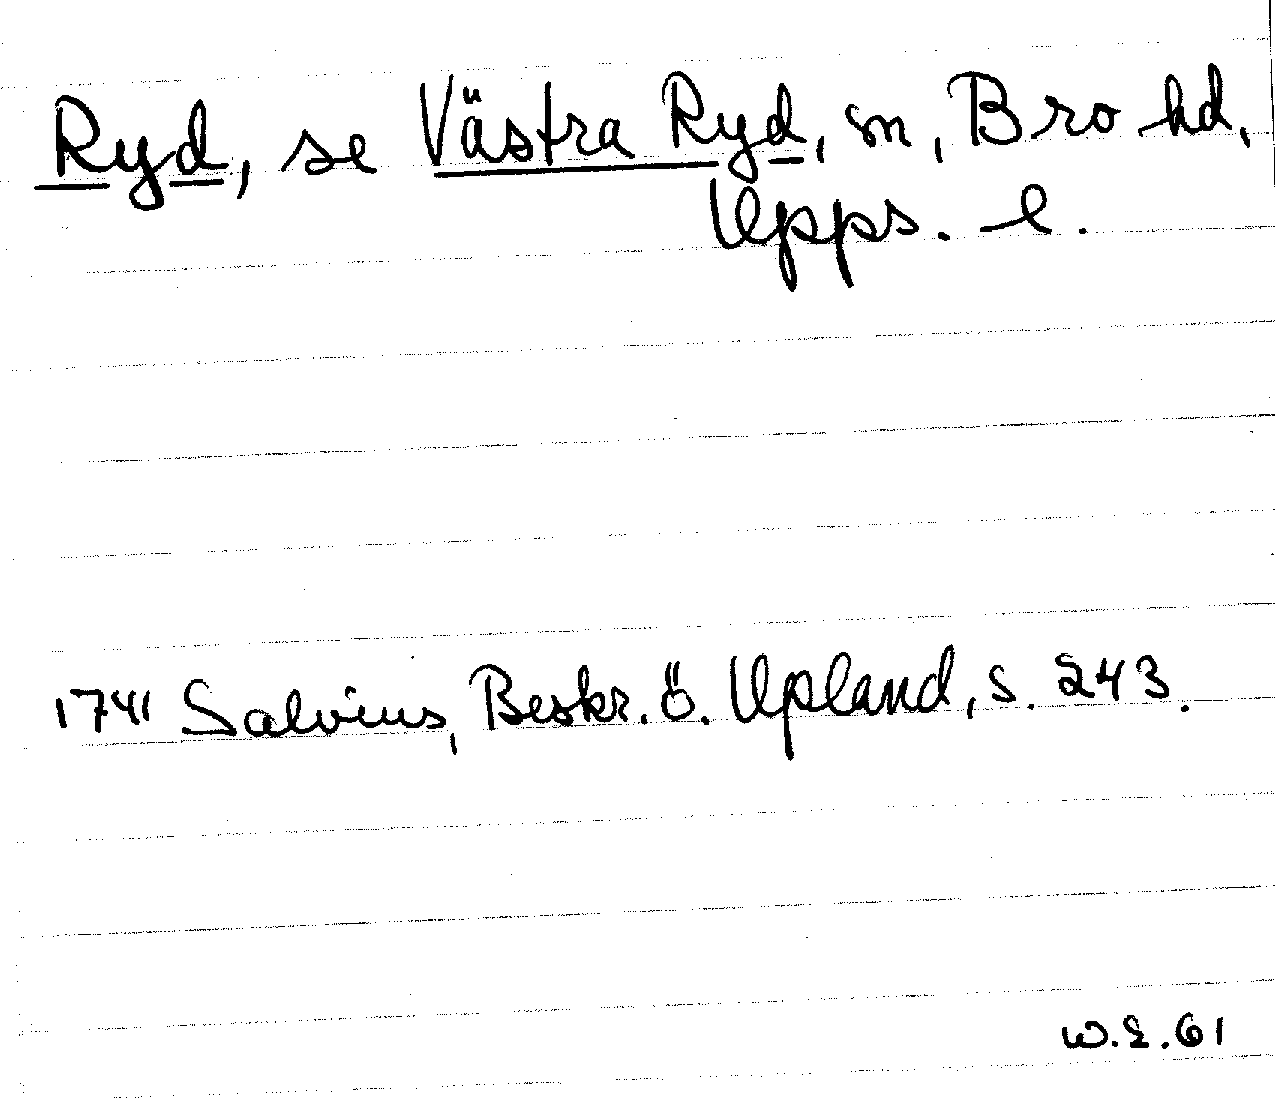 Ryd, se Västra Ryd, sn, Bro hd,
Upps. l.
1741 Salvius, Beskr. ö. Upland, s. 243.
W.L.61